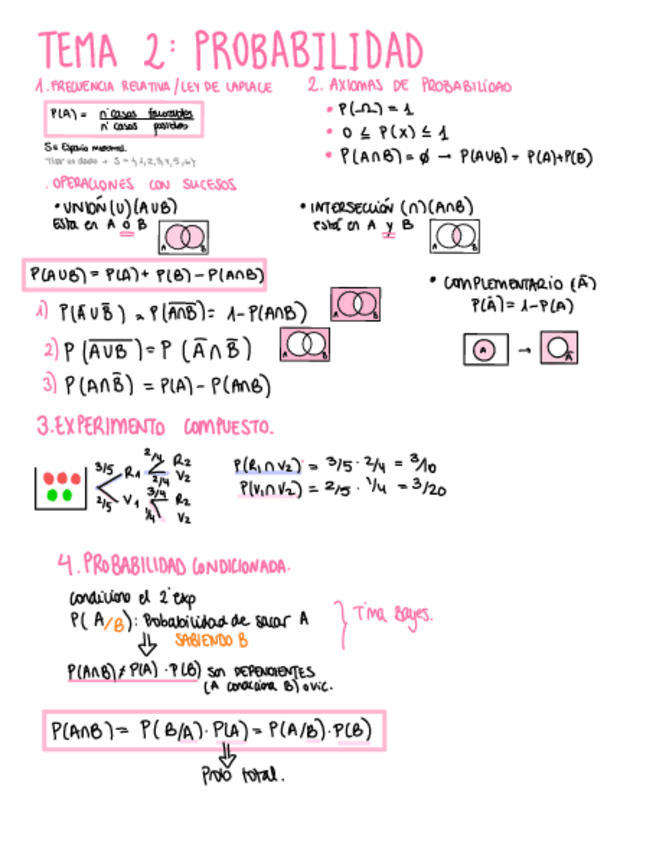 TEMA 2: PROBABILIDAD
1. FRECUENCIA RELATIVA / LEY DE LAPLACE
P(A) = nº casos favorables / nº casos posibles
S = Espacio muestral.
Tirar un dado → S = {1,2,3,4,5,6}
2. AXIOMAS DE PROBABILIDAD
• P(Ω) = 1
• 0 ≤ P(X) ≤ 1
• P(A∩B) = ∅ → P(A∪B) = P(A)+P(B)
. OPERACIONES CON SUCESOS
• UNIÓN (U) (A∪B)
Esta en A ó B
A B
• INTERSECCIÓN (∩) (A∩B)
está en A y B
A B
P(A∪B) = P(A) + P(B) - P(A∩B)
• COMPLEMENTARIO (Ā)
P(Ā) = 1 - P(A)
A → Ā
1) P(Ā∪B̄) = P(A∩B)‾ = 1 - P(A∩B)
A B
2) P(A∪B)‾ = P(Ā∩B̄)
A B
3) P(A∩B̄) = P(A) - P(A∩B)
3. EXPERIMENTO COMPUESTO.
3/5 R1 2/4 R2
2/4 V2
2/5 V1 3/4 R2
1/4 V2
P(R1∩V2) = 3/5 · 2/4 = 3/10
P(V1∩V2) = 2/5 · 1/4 = 3/20
4. PROBABILIDAD CONDICIONADA.
condiciono el 2º exp
P(A/B): Probabilidad de sacar A
SABIENDO B
} Tma Bayes.
P(A∩B) ≠ P(A) · P(B) son DEPENDIENTES
(A condiciona B) o vic.
P(A∩B) = P(B/A) · P(A) = P(A/B) · P(B)
Prob total.